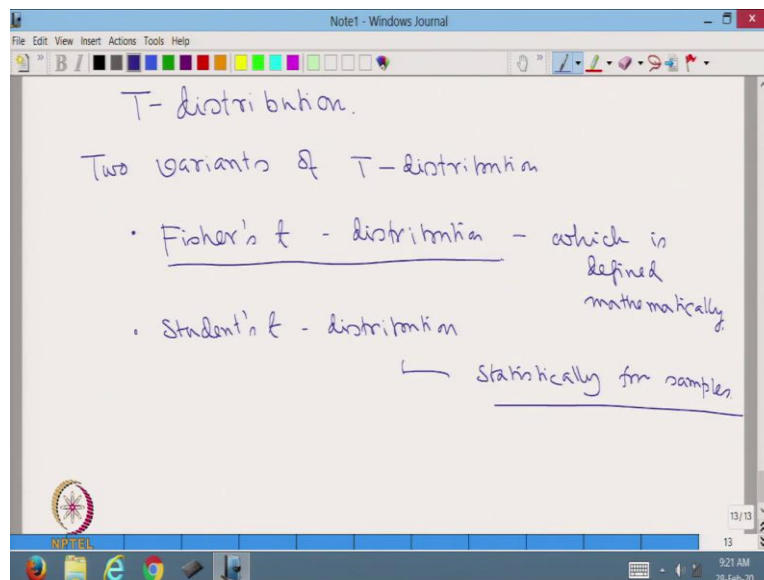 Note1 - Windows Journal
File Edit View Insert Actions Tools Help
B I
T- distribution.
Two variants of T-distribution
· Fisher's t - distribution - which is
defined
mathematically.
· Student's t - distribution
Statistically for samples
NPTEL
13/13
13
9:21 AM
28-Feb-20